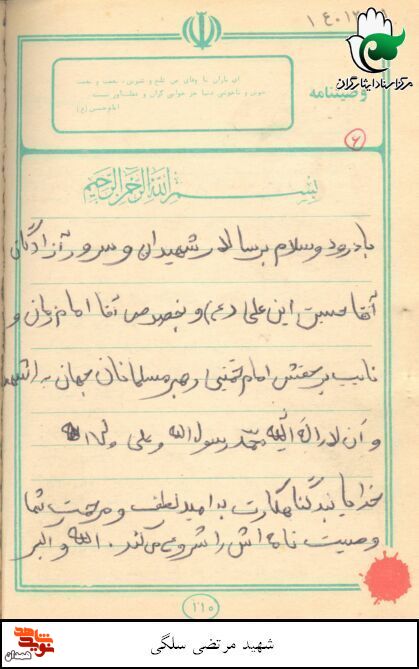 ۱۴۰۱۲
مرکز اسناد ایثارگران
وصیتنامه
ای یاران با وفای من تلخ و شیرین، نعمت و نقمت
خوش و ناخوش دنیا جز خوابی گران و
امام حسین (ع)
۶
بسم الله الرحمن الرحیم
با درود و سلام بر سالار شهیدان و سرور آزادگان
آقا حسین ابن علی (ع) و بخصوص آقا امام زمان و
نایب بر حقش امام خمینی رهبر مسلمانان جهان اشهد
و ان لا اله الا الله محمد رسول الله و علی ولی الله
خدایا بنده گناهکارت به امید لطف و مرحمت شما
وصیت نامه اش را شروع می کند. الله و اکبر
۱۱۰
شهید مرتضی سلگی
نوید شاهد
همدان